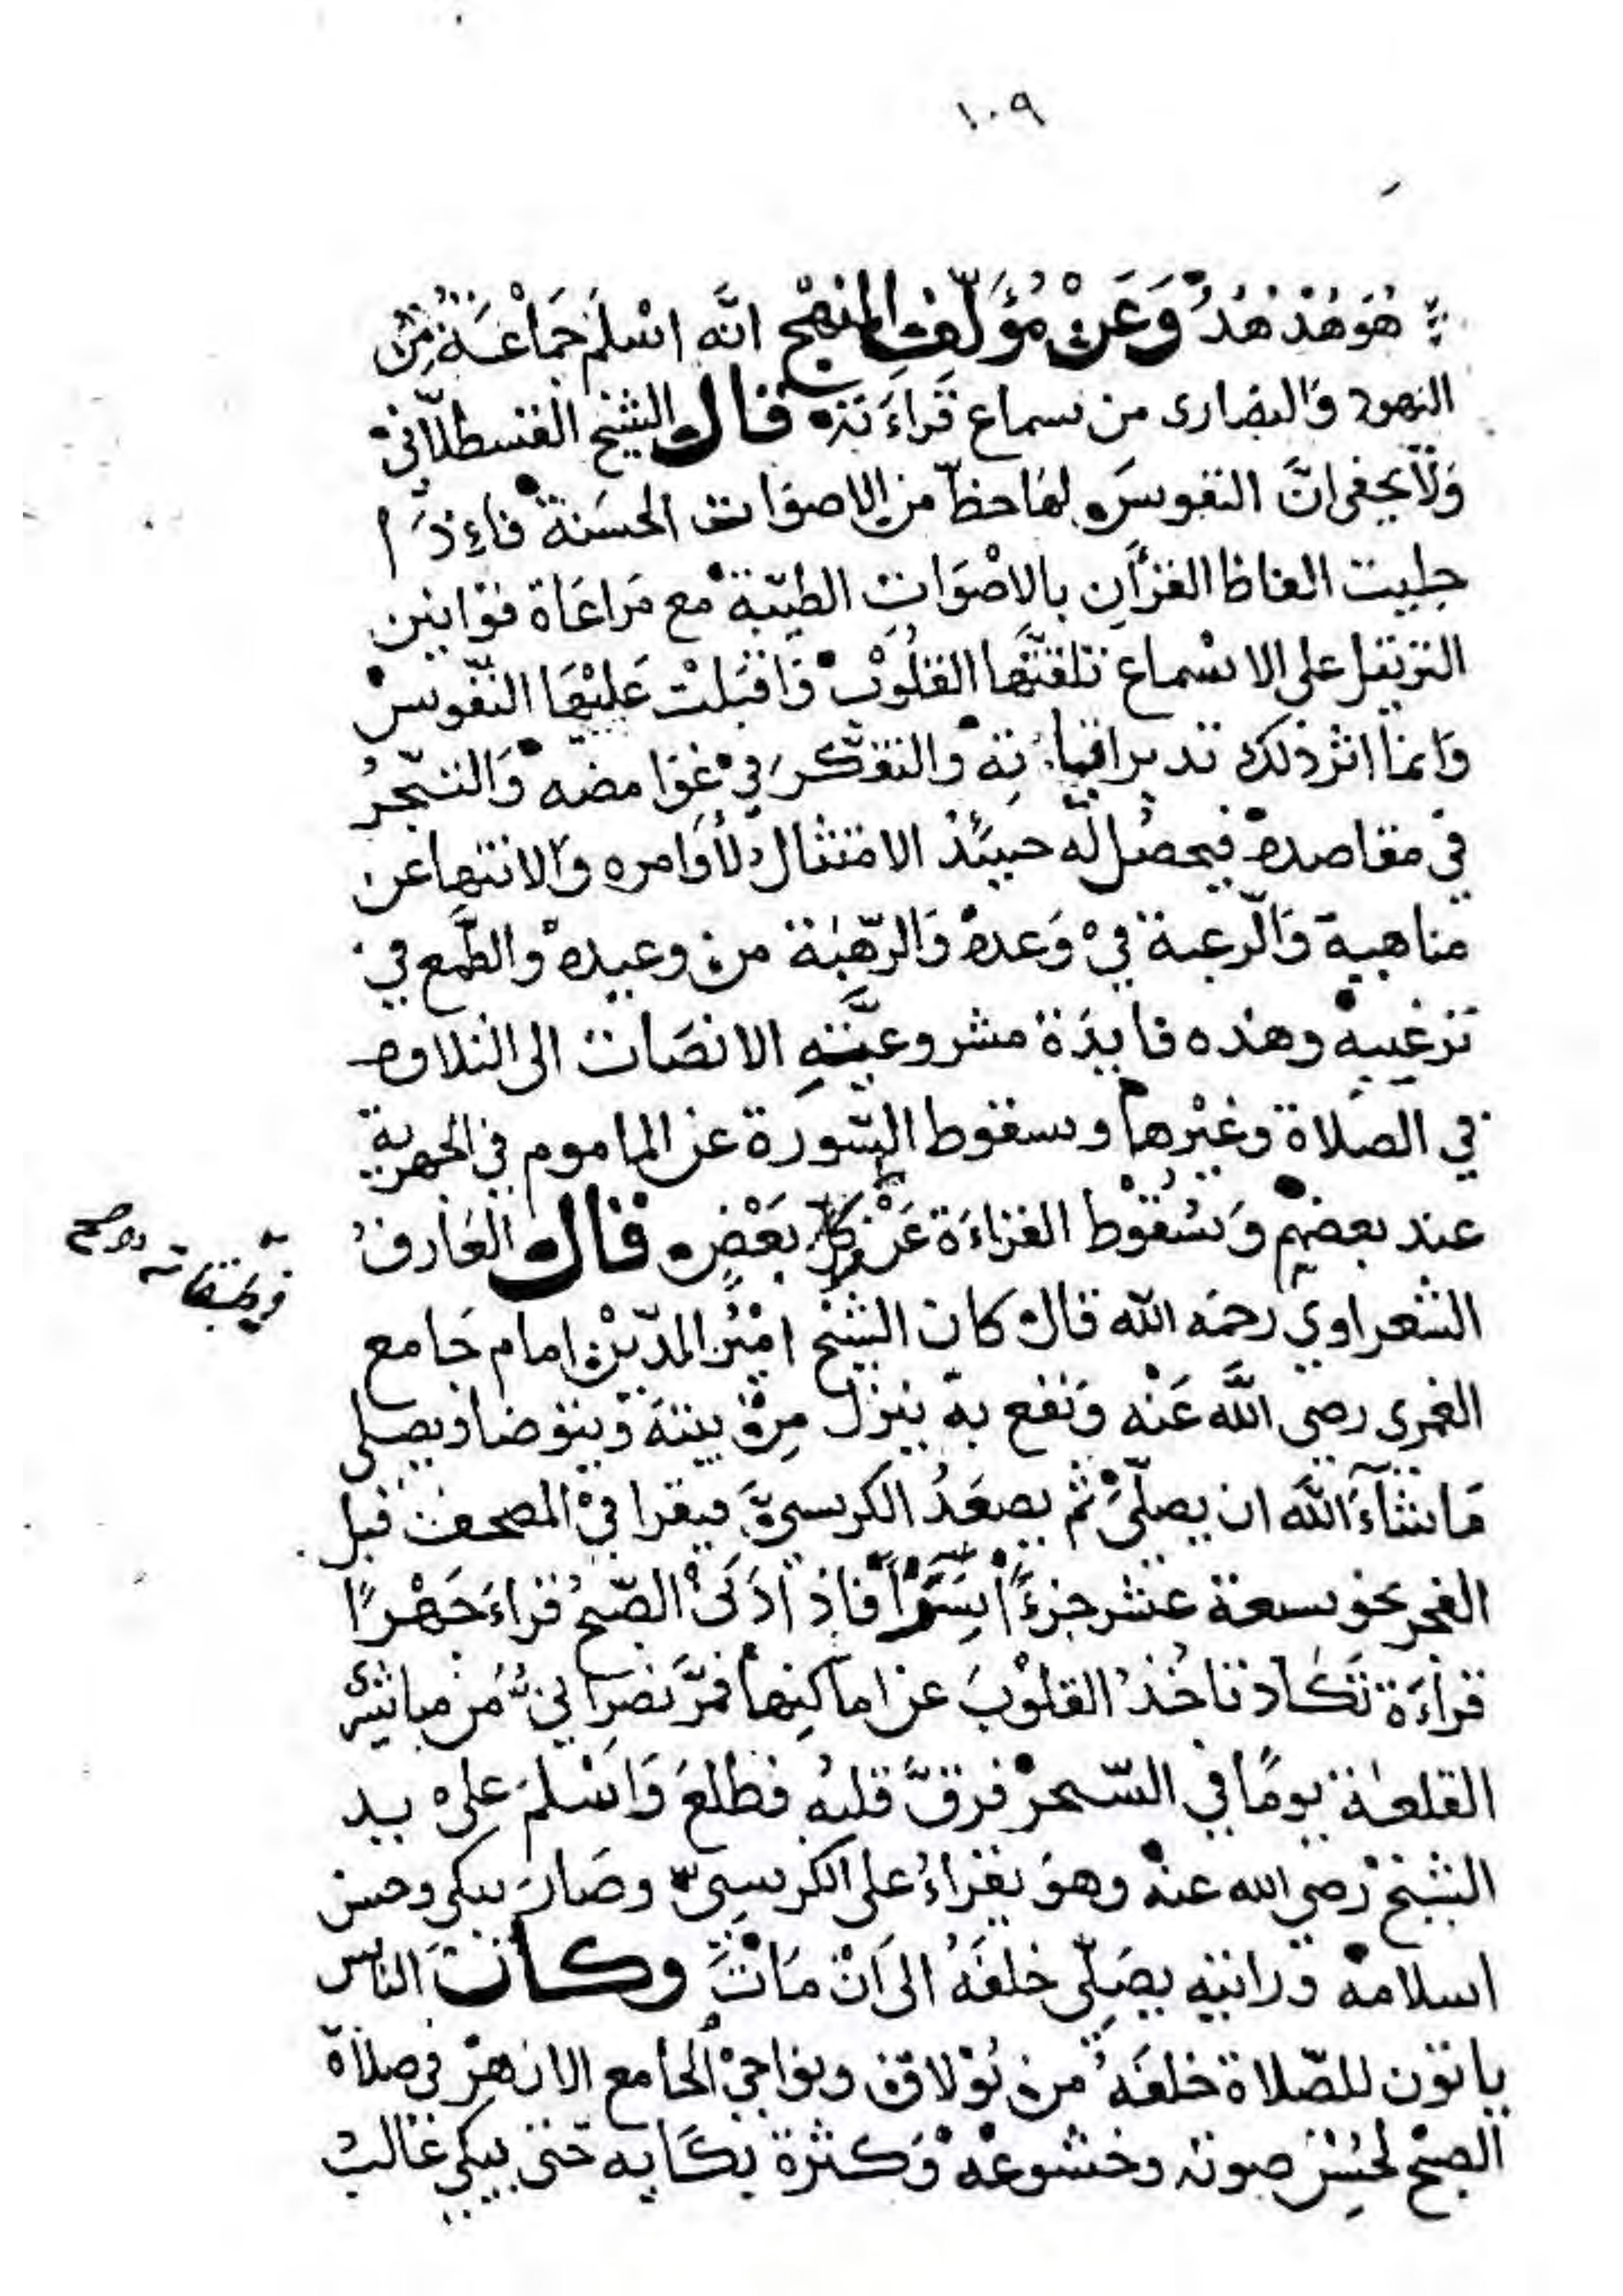 ١٠٩
هُوَ هُدْهُدُ وَعَنْ مُؤَلِّفِ المنهج انَّه اسْلَمَ جَمَاعَةُ مِنْ
اليهود والنصارى من سماع قراءَته قال الشيخ القسطلاني
وَلَا يخفى انَّ النفوسَ لهَا حظّ من الاصوَات الحسَنة فاءِذَا
جليت الفاظ القرآن بالاصْوَاتِ الطيّبة مع مَراعَاة قوَانين
الترتيل على الاسْماع تلقتَّها القلُوْب وَاقبَلتْ عَليْهَا النّفُوسْ
وَانما اثر ذلك تدبر اياته والتفكّر في غوَامضه وَالتبّحرُ
في مقاصده فيحصُل له حينئذ الامتثال لأوَامره وَالانتها عن
مناهيه وَالرغبة فيْ وَعده وَالرّهبَة من وعيده والطّمع في
ترغيبه وهذه فايدَة مشروعيَّتهِ الانصَات الى التلاوه
في الصَلاة وغيْرها وسقوط السّورَة عن الماموم في الجهرية
عند بعضهم وَسُقوْط القراءَة عَنْ كل بَعْضٍ قال العَارفُ
في طبقاته صح
الشعراوي رحمَه الله قال كان الشيْخ امِيْنُ الدّيْن امام جَامع
الغمرى رضي اللَّه عَنْه وَنفع به ينزل مِنْ بيته وَيتوَضا ويصلي
مَا شَآءَ اللَّه ان يصلّيْ ثم يصعَدُ الكرسيَّ فيقرا فيْ المصحف قبل
الفجر نحو سعة عشر جزءًا سِرًّا فاذا اذنَ الصّبحُ قراءَ جَهْرًا
قراءَة تَكاد تاخُذُ القلوْبَ عن اماكنها فمرَّ نصْرَانيُّ مُن مباشرى
القلعة يومًا في السّحر فرقَّ قلبه فطلعَ وَاسْلمَ على يد
الشيخ رضي الله عنْه وهوَ يقراءُ على الكرسيّ وصَارَ يبكي وحسن
اسلامه وَرايته يصَلّى خلفَهُ الى اَنْ مَاتَ وكانت الناس
ياتوْن للصّلاة خلفَهُ من بُوْلاق ونواحيْ الجامع الازهَر في صلاة
الصبْح لحُسْن صوته وخشوعهْ وَكثرة بكَايه حتى يبكي غالبُ